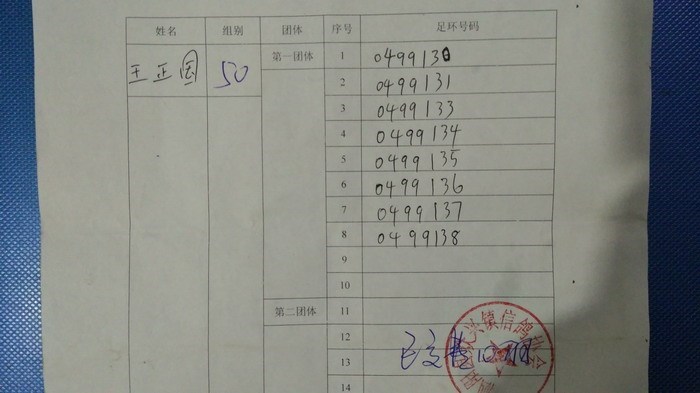 姓名 组别 团体 序号 足环号码
王正国 50 第一团体 1 0499130
2 0499131
3 0499133
4 0499134
5 0499135
6 0499136
7 0499137
8 0499138
9
10
第二团体 11
12
已交费
13
14
镇信鸽协会